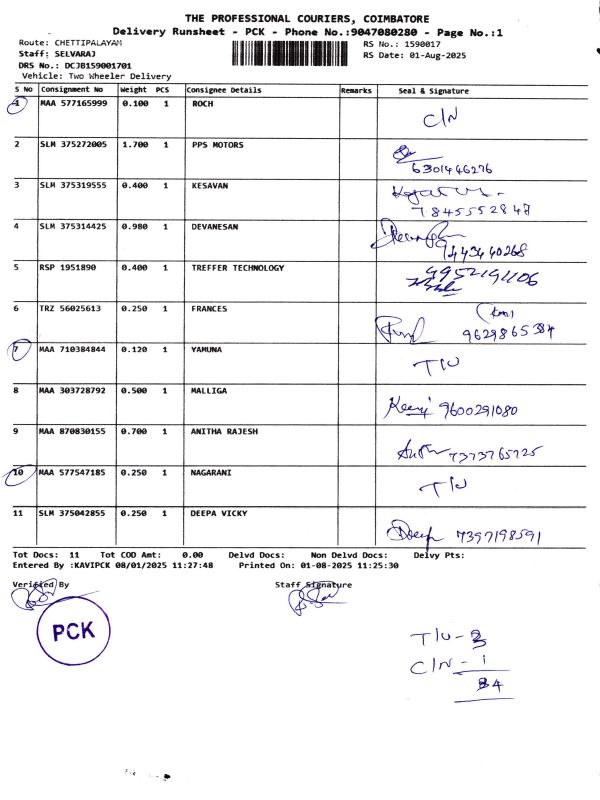 THE PROFESSIONAL COURIERS, COIMBATORE
Delivery Runsheet - PCK - Phone No.:9047080280 - Page No.:1
Route: CHETTIPALAYAM
RS No.: 1590017
Staff: SELVARAJ
RS Date: 01-Aug-2025
DRS No.: DCJB159001701
Vehicle: Two Wheeler Delivery
S No Consignment No Weight PCS Consignee Details Remarks Seal & Signature
1 MAA 577165999 0.100 1 ROCH C/N
2 SLM 375272005 1.700 1 PPS MOTORS
6301446276
3 SLM 375319555 0.400 1 KESAVAN
7845552847
4 SLM 375314425 0.980 1 DEVANESAN
9443440268
5 RSP 1951890 0.400 1 TREFFER TECHNOLOGY
6 TRZ 56025613 0.250 1 FRANCES
7 MAA 710384844 0.120 1 YAMUNA T/U
8 MAA 303728792 0.500 1 MALLIGA 9600291080
9 MAA 870830155 0.700 1 ANITHA RAJESH 7373765725
10 MAA 577547185 0.250 1 NAGARANI T/U
11 SLM 375042855 0.250 1 DEEPA VICKY Deepa 7397198591
Tot Docs: 11 Tot COD Amt: 0.00 Delvd Docs: Non Delvd Docs: Delvy Pts:
Entered By :KAVIPCK 08/01/2025 11:27:48 Printed On: 01-08-2025 11:25:30
Verified By Staff Signature
PCK
T/U - 3
C/N - 1
4